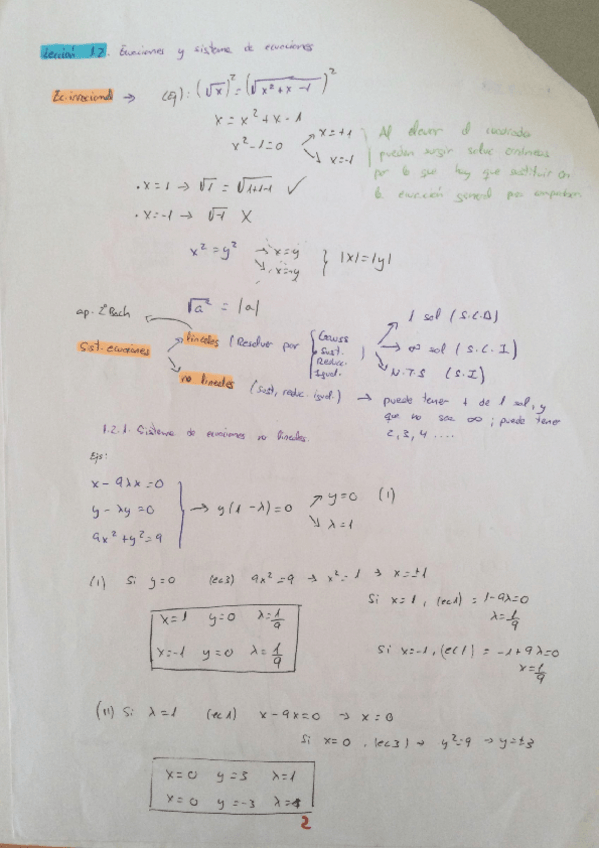 Lección 1.2. Ecuaciones y sistema de ecuaciones
Ec. irracional → (Ej): (√x)² = (√x² + x - 1)²
x = x² + x - 1
x² - 1 = 0 → x = +1
→ x = -1
Al elevar al cuadrado
pueden surgir soluc. erróneas
por lo que hay que sustituir en
la ecuación general para comprobar
· x = 1 → √1 = √1+1-1 ✓
· x = -1 → √-1 X
x² = y² → x = y
→ x = -y } |x| = |y|
√a² = |a|
ap. 2º Bach
Sist. ecuaciones
lineales (Resolver por { Gauss
Sust.
Reduc.
Igual. )
1 sol (S.C.D)
∞ sol (S.C.I)
N.T.S (S.I)
no lineales (Sust, reduc. igual.) → puede tener + de 1 sol, y
que no sea ∞; puede tener
2, 3, 4 ....
1.2.1. Sistema de ecuaciones no lineales.
Ejs:
x - 9λx = 0
y - λy = 0
9x² + y² = 9
→ y(1 - λ) = 0 → y = 0 (I)
→ λ = 1
(I) Si y = 0 (ec3) 9x² = 9 → x² = 1 → x = ±1
Si x = 1, (ec1) = 1 - 9λ = 0
λ = 1/9
x = 1 y = 0 λ = 1/9
x = -1 y = 0 λ = 1/9
Si x = -1, (ec1) = -1 + 9λ = 0
x = 1/9
(II) Si λ = 1 (ec1) x - 9x = 0 → x = 0
Si x = 0, (ec3) → y² = 9 → y = ±3
x = 0 y = 3 λ = 1
x = 0 y = -3 λ = 1
2